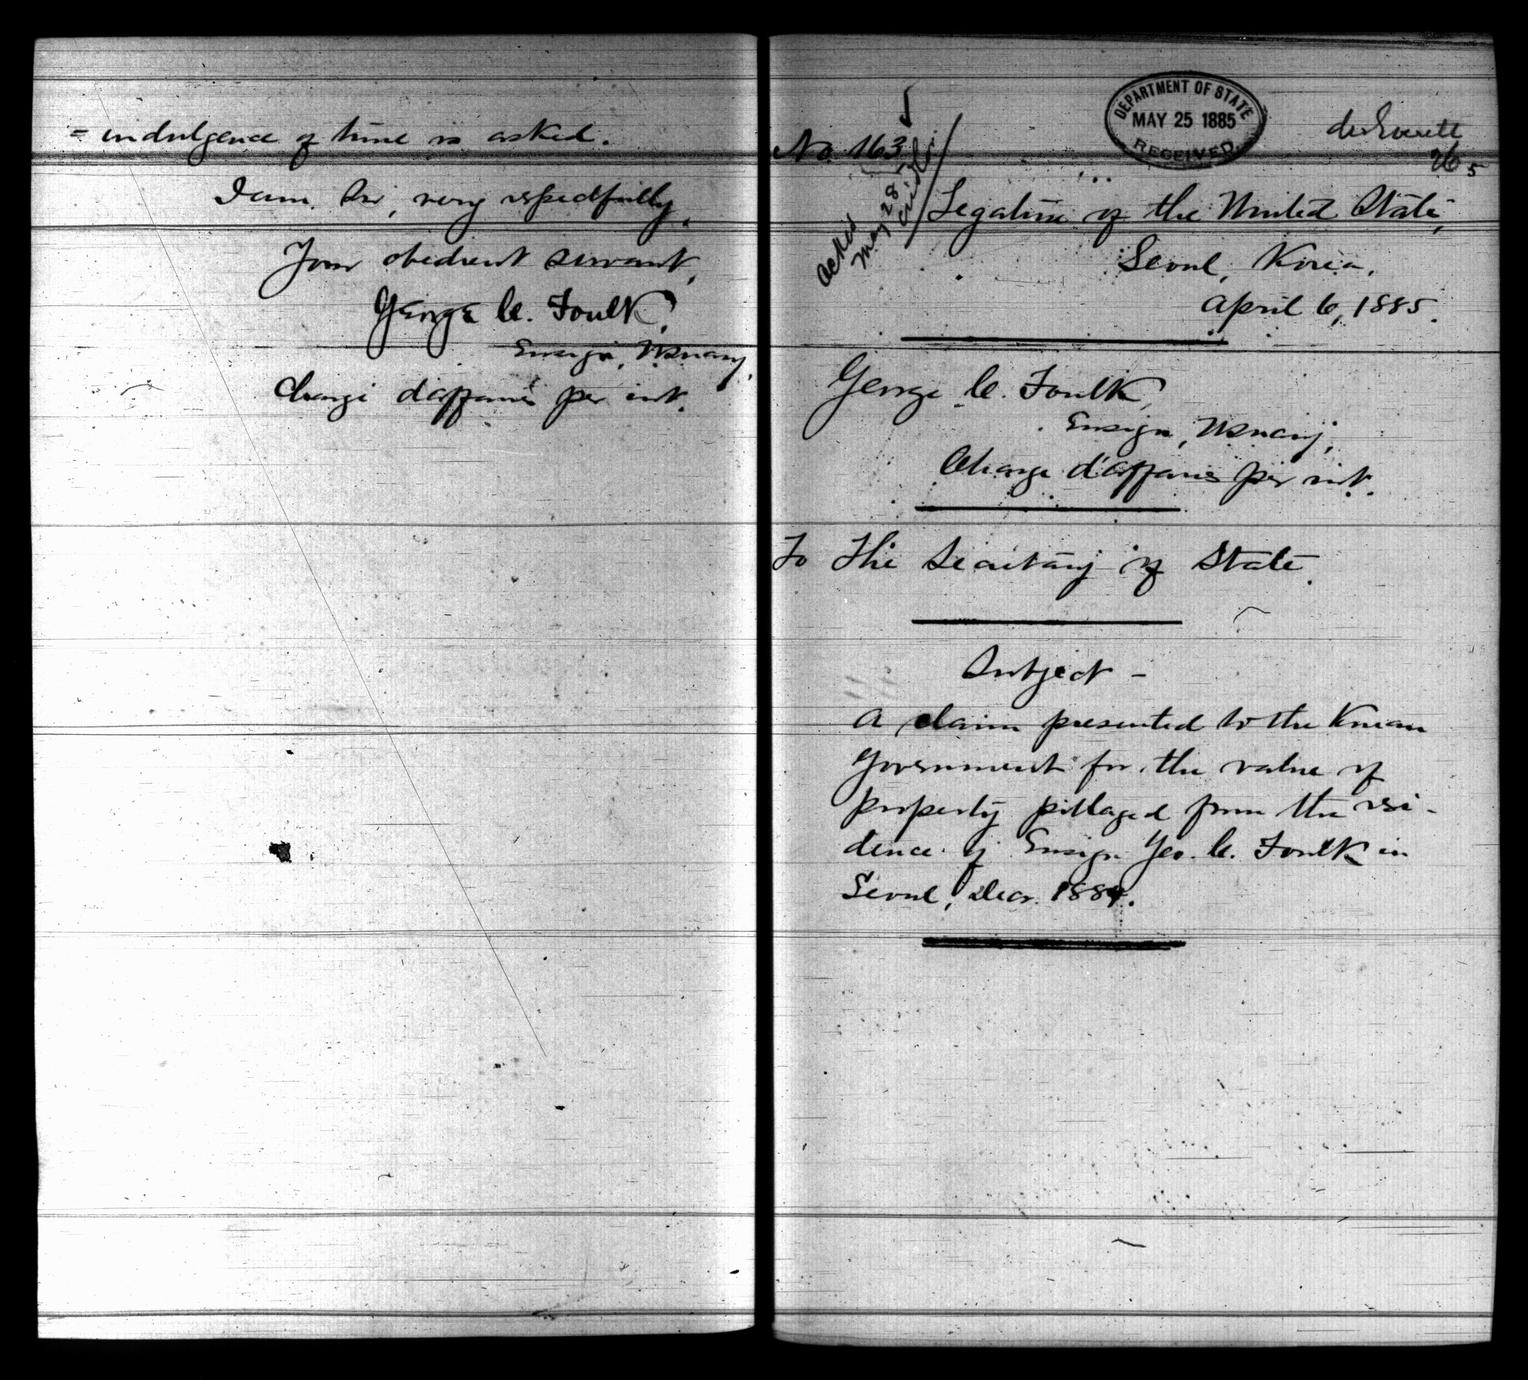 = indulgence of time is asked.
I am, Sir, very respectfully,
Your obedient servant,
George C. Foulk,
Ensign, U.S. Navy,
Chargé d'affaires per int.
No. 163
DEPARTMENT OF STATE
MAY 25 1885
RECEIVED
26
5
ackd
May 28
Legation of the United States,
Seoul, Korea,
April 6, 1885.
George C. Foulk,
Ensign, U.S. Navy,
Charge d'affaires per int.
To The Secretary of State.
Subject -
A claim presented to the Korean
Government for the value of
property pillaged from the resi-
dence of Ensign Geo. C. Foulk in
Seoul, Decr. 1884.